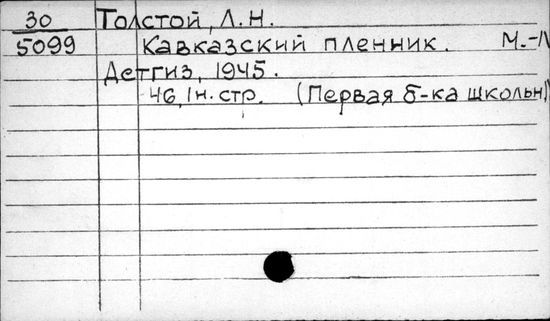 30 Толстой, Л.Н.
5099 Кавказский пленник. М.-
Детгиз, 1945.
46, 1н. стр. (Первая б-ка школьн